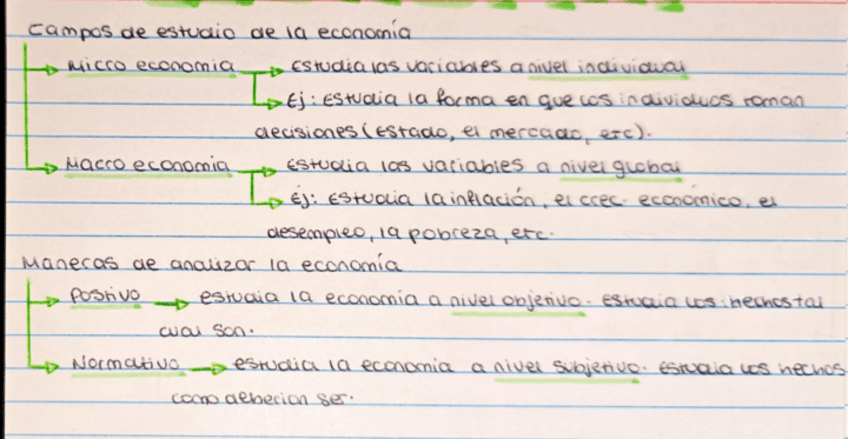 Campos de estudio de la economía
Micro economia → Estudia las variables a nivel individual
Ej: Estudia la forma en que los individuos toman
decisiones (Estado, el mercado, etc).
Macro economia → Estudia las variables a nivel global
Ej: Estudia la inflación, el crec. económico, el
desempleo, la pobreza, etc.
Maneras de analizar la economía
Postivo → estudia la economía a nivel objetivo. Estudia los hechos tal
cual son.
Normativo → estudia la economía a nivel subjetivo. Estudia los hechos
como deberian ser.